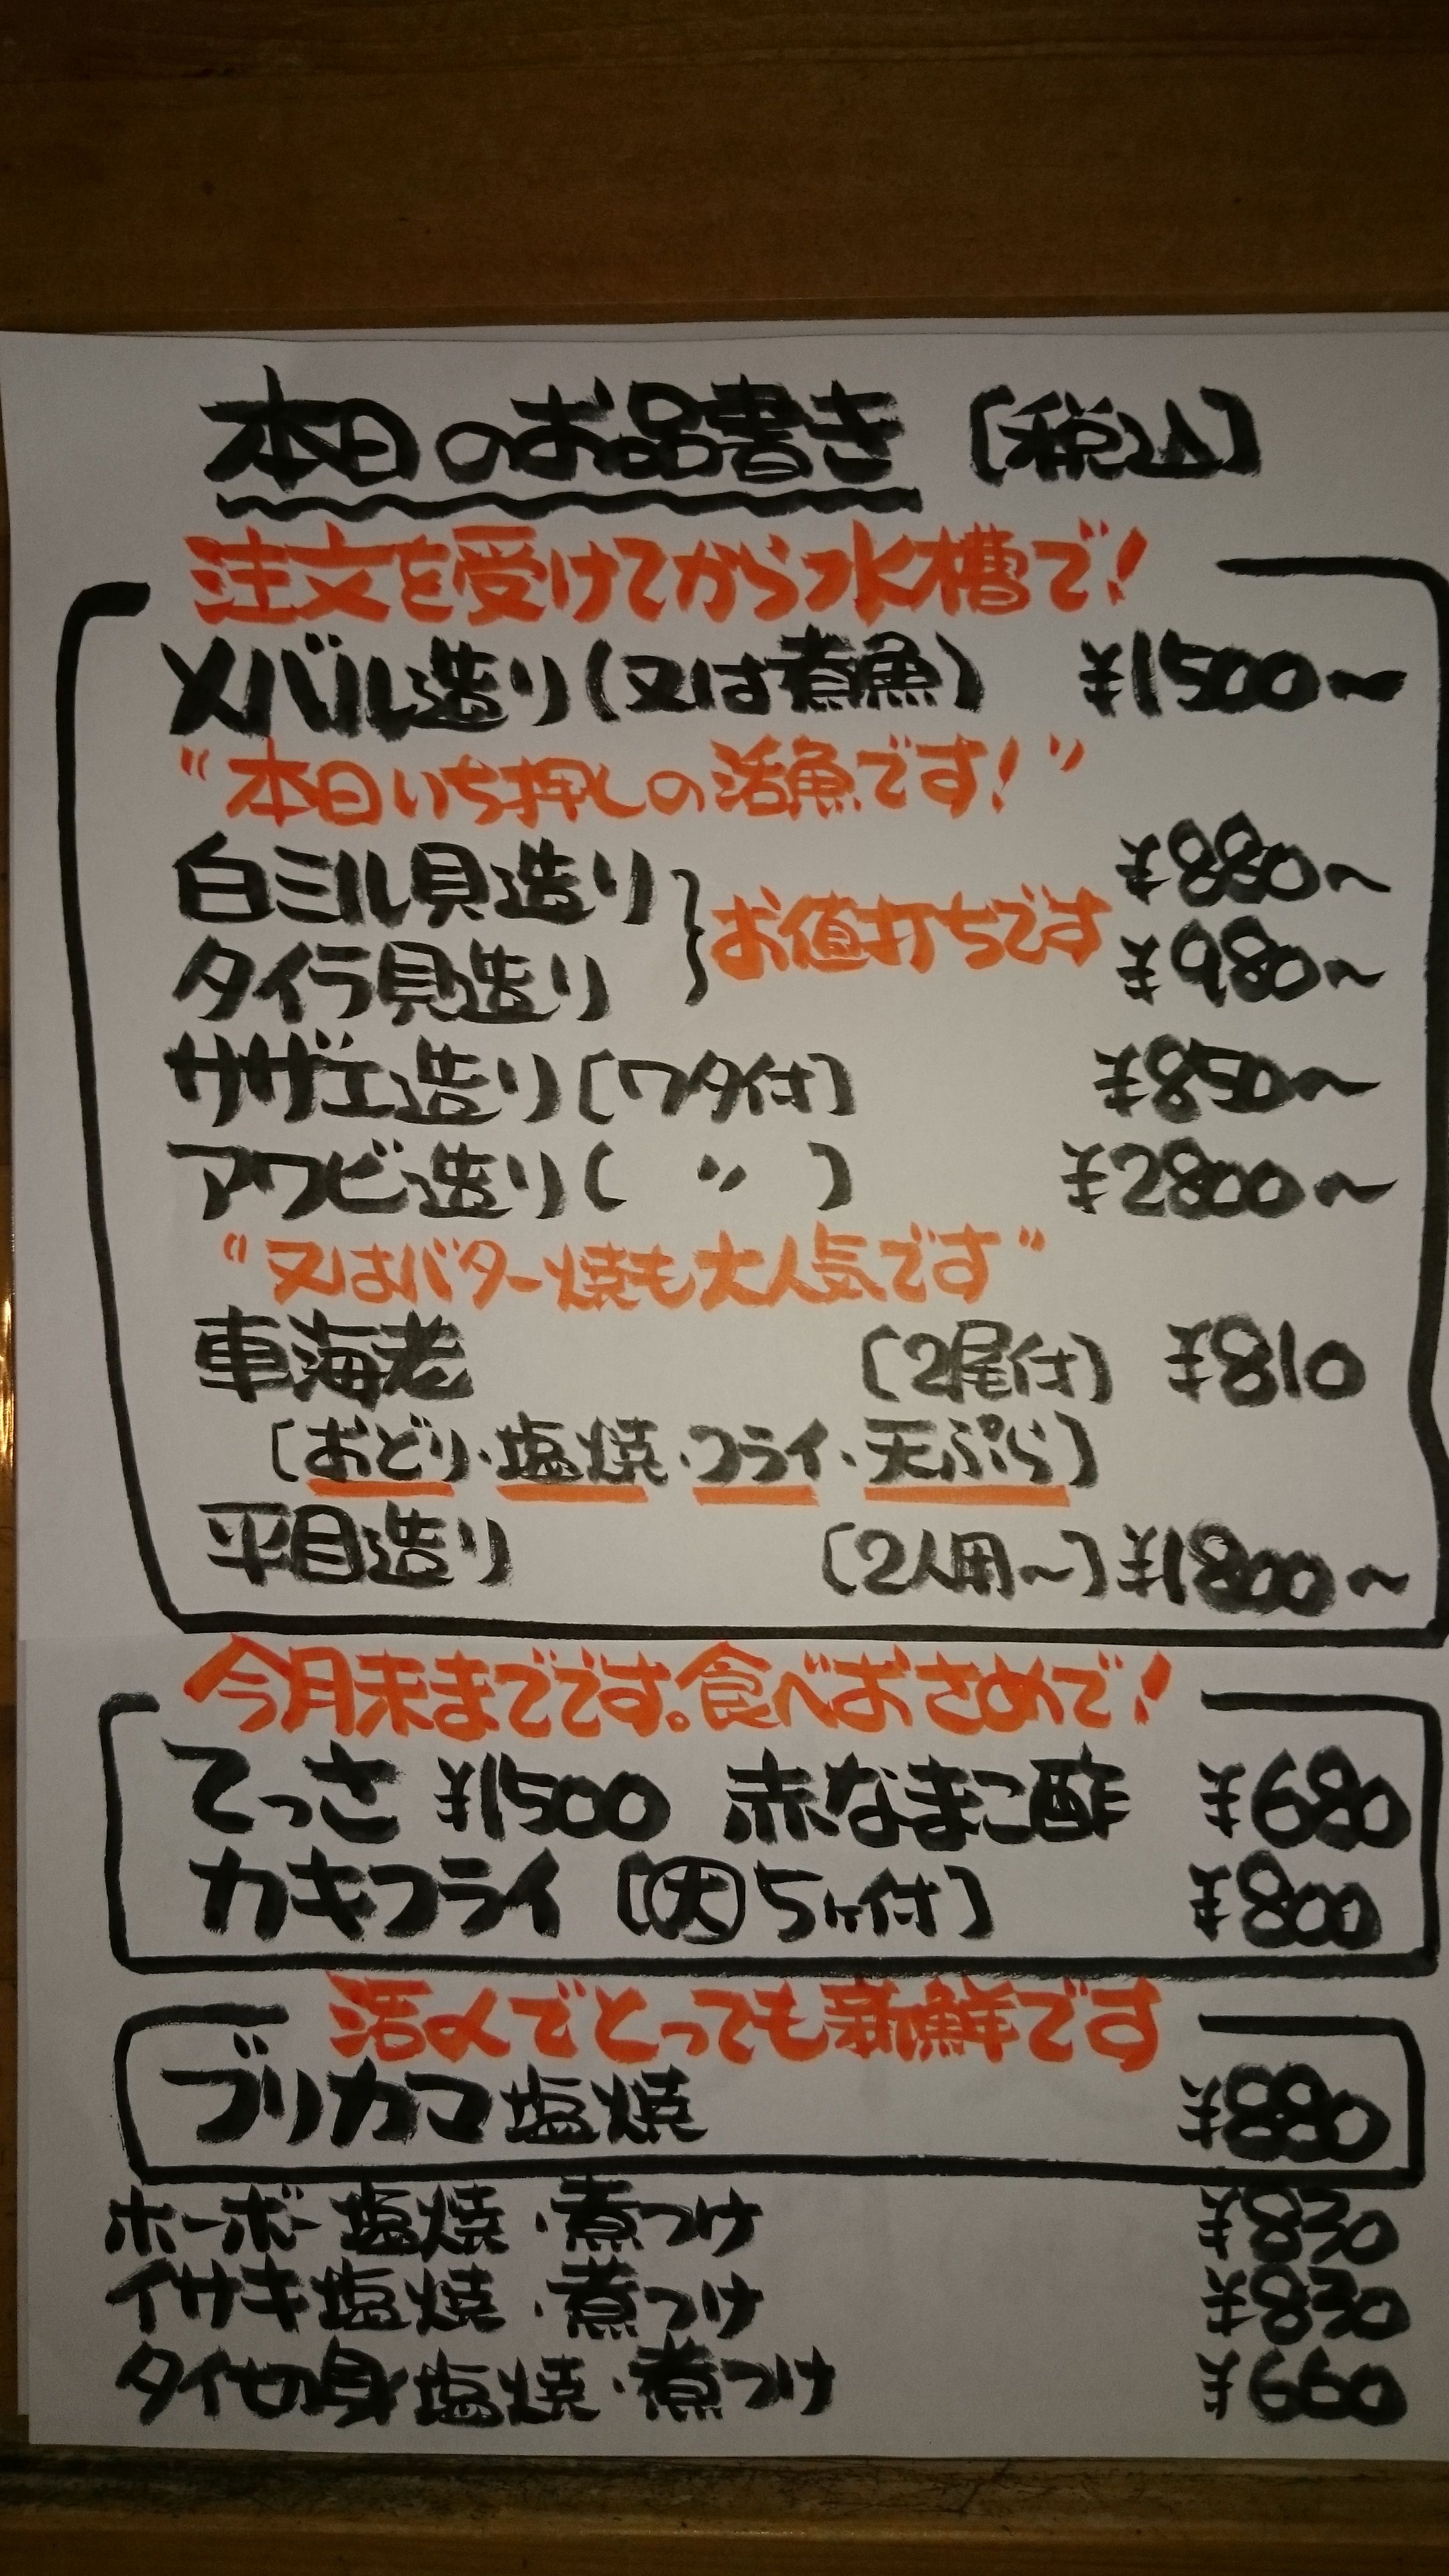 本日のお品書き 〔税込〕
注文を受けてから水槽で!
メバル造り(又は煮魚) ¥1500〜
"本日いち押しの活魚です!"
白ミル貝造り ¥880〜
お値打ちです
タイラ貝造り ¥980〜
サザエ造り〔ワタ付〕 ¥850〜
アワビ造り〔 〃 〕 ¥2800〜
"又はバター焼も大人気です"
車海老 〔2尾付〕 ¥810
〔おどり・塩焼・フライ・天ぷら〕
平目造り 〔2人用〜〕 ¥1800〜
今月末までです。食べおさめで!
てっさ ¥1500 赤なまこ酢 ¥980
カキフライ 〔大5ヶ付〕 ¥800
活〆でとっても新鮮です
ブリカマ塩焼 ¥880
ホーボー塩焼・煮つけ ¥830
イサキ塩焼・煮つけ ¥830
タイ切身塩焼・煮つけ ¥990